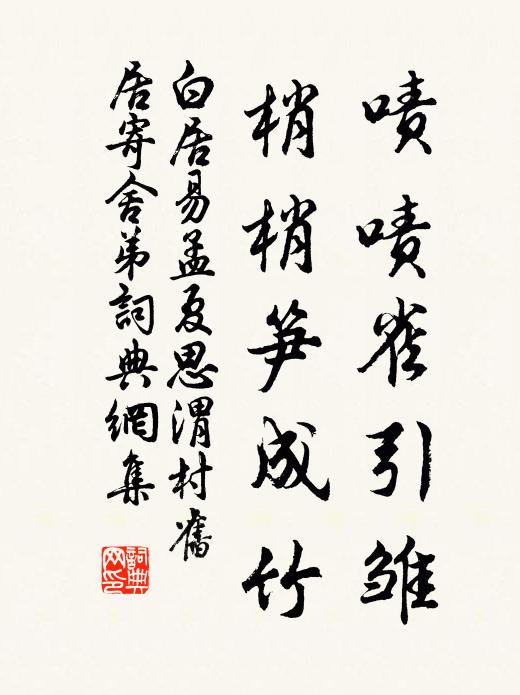 嘖嘖雀引雏
梢梢笋成竹
白居易孟夏思渭村舊
居寄舍弟詞典網集
詞典
网印